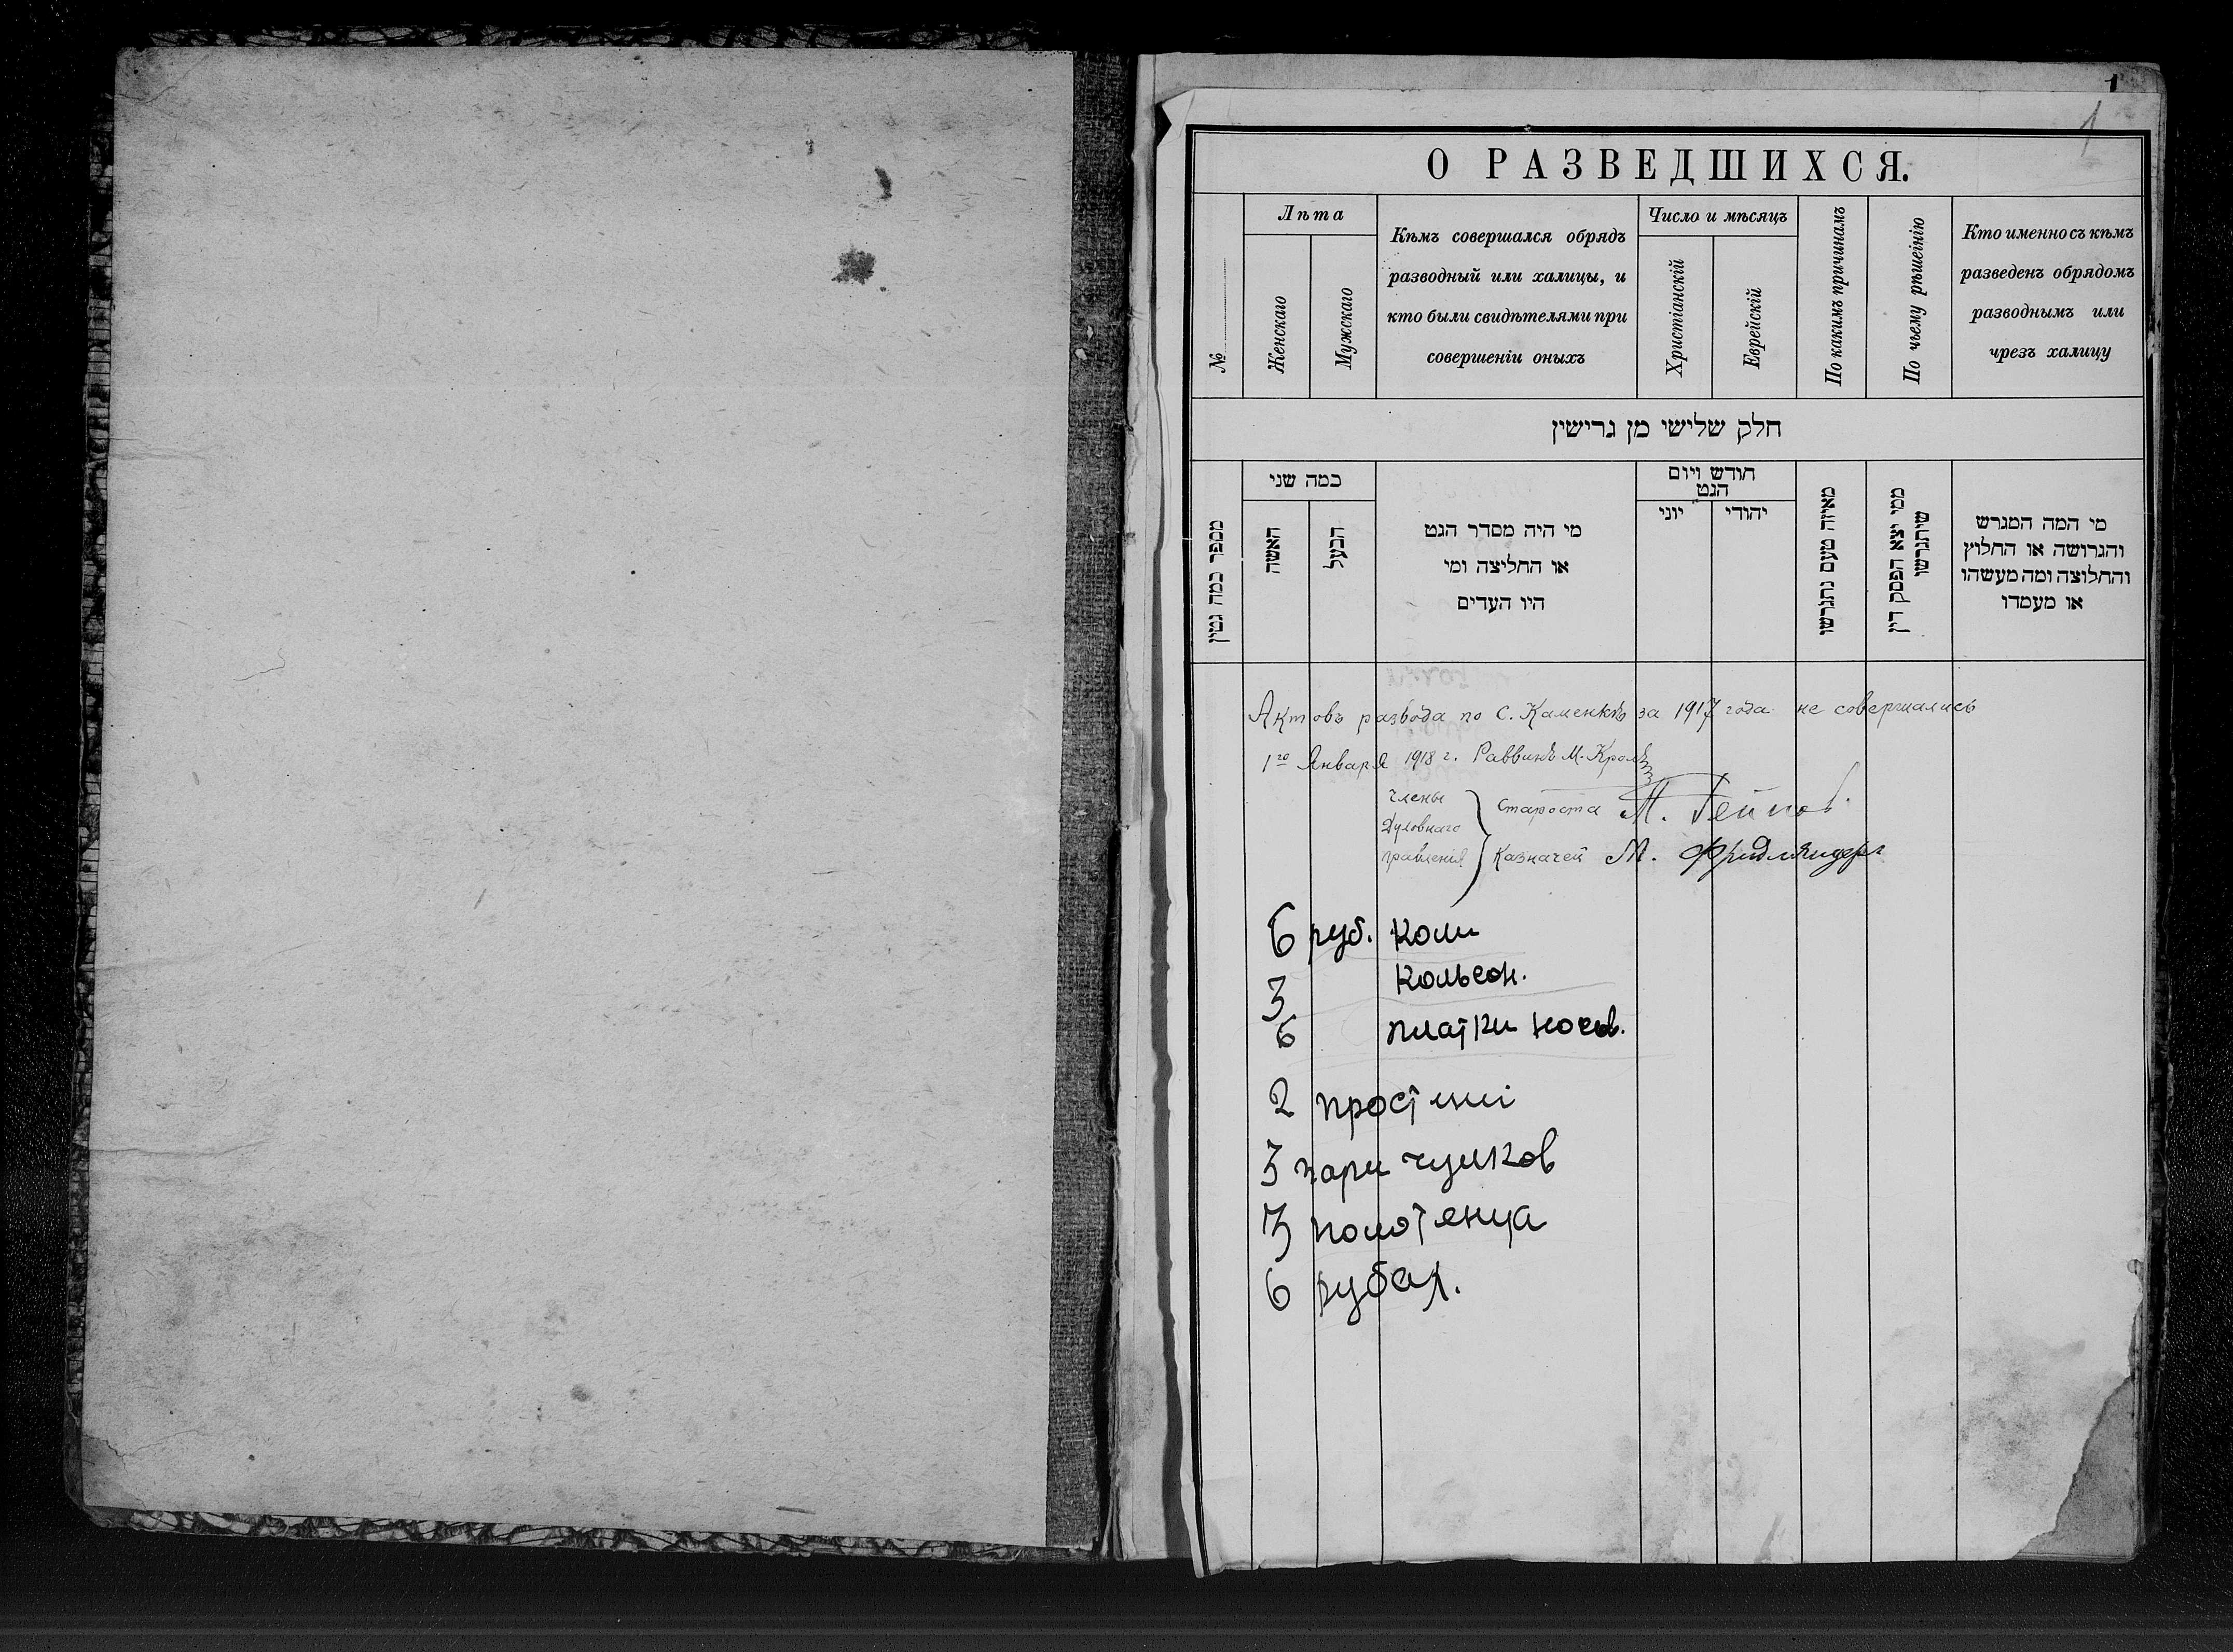 1
1
О РАЗВЕДШИХСЯ.
№
Лѣта
Женскаго
Мужскаго
Кѣмъ совершался обрядъ
разводный или халицы, и
кто были свидѣтелями при
совершеніи оныхъ
Число и мѣсяцъ
Христіанскій
Еврейскій
По какимъ причинамъ
По чьему рѣшенію
Кто именно съ кѣмъ
разведенъ обрядомъ
разводнымъ или
чрезъ халицу
חלק שלישי מן גרישין
מספר כמה גטין
כמה שני
האשה
הבעל
מי היה מסדר הגט
או החליצה ומי
היו העדים
חודש ויום
הגט
יוני
יהודי
מאיזה טעם נתגרשו
ממי יצא הפסק דין
שיתגרשו
מי המה המגרש
והגרושה או החלוץ
והחלוצה ומה מעשהו
או מעמדו
Актовъ развода по С. Каменкѣ за 1917 года не совершались
1го Января 1918 г. Раввинъ М.
Члены
Духовнаго
правленія
Староста М.
Казначей М. Фридляндеръ
6 руб.
3 кольсон.
6 платки носов.
2 простині
3 пари чулков
3 полотенца
6